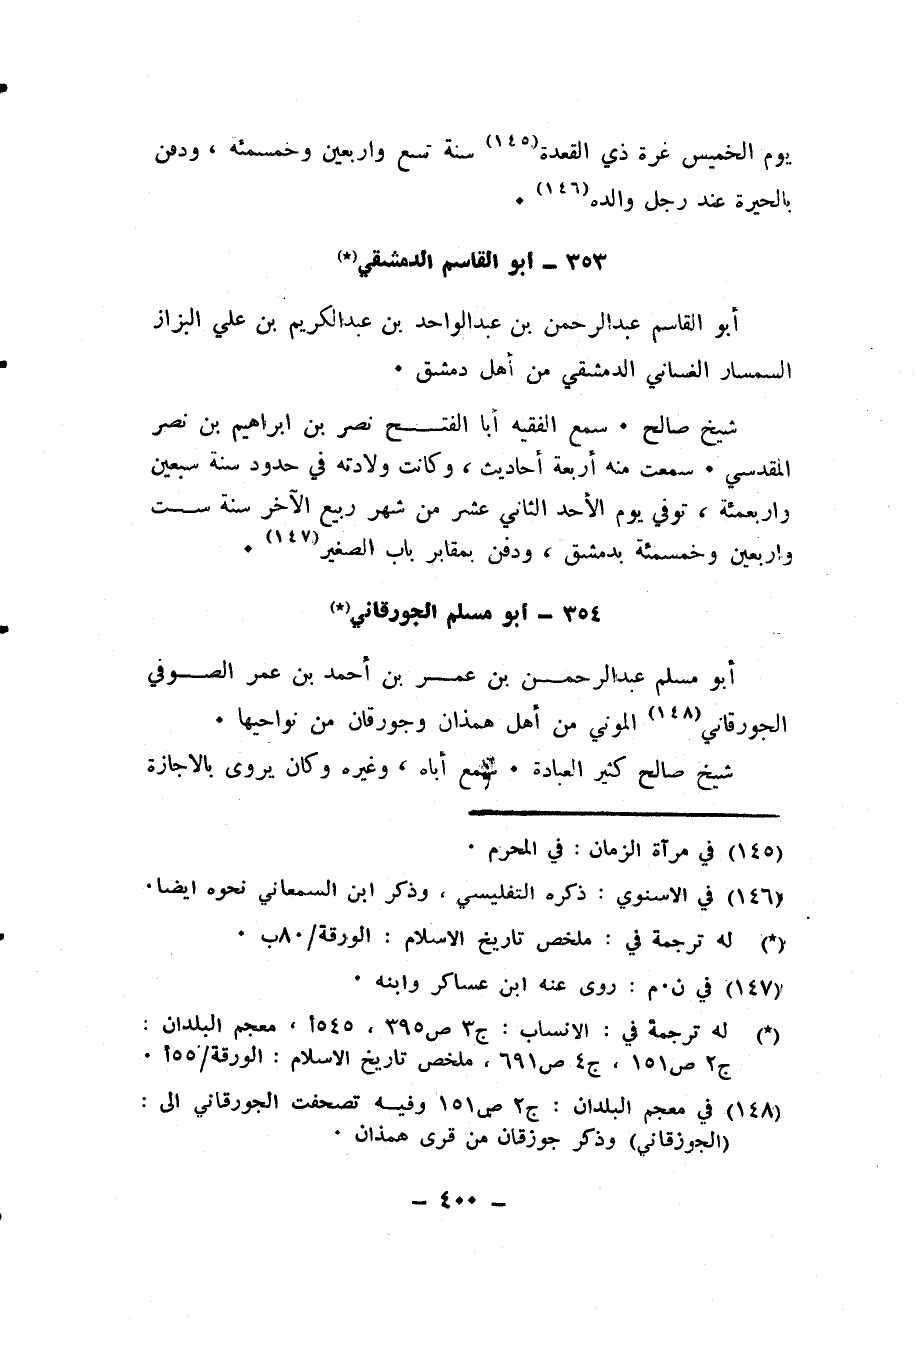 يوم الخميس غرة ذي القعدة(١٤٥) سنة تسع واربعين وخمسمئه ، ودفن
بالحيرة عند رجل والده(١٤٦) ٠
٣٥٣ ــ ابو القاسم الدمشقي(*)
أبو القاسم عبدالرحمن بن عبدالواحد بن عبدالكريم بن علي البزاز
السمسار الغساني الدمشقي من أهل دمشق ٠
شيخ صالح ٠ سمع الفقيه أبا الفتـــــح نصر بن ابراهيم بن نصر
المقدسي ٠ سمعت منه أربعة أحاديث ، وكانت ولادته في حدود سنة سبعين
واربعمئة ، توفي يوم الأحد الثاني عشر من شهر ربيع الآخر سنة ســـت
واربعين وخمسمئة بدمشق ، ودفن بمقابر باب الصغير(١٤٧) ٠
٣٥٤ ــ ابو مسلم الجورقاني(*)
أبو مسلم عبدالرحمـــن بن عمـــر بن أحمد بن عمر الصـــوفي
الجورقاني(١٤٨) الموني من أهل همذان وجورقان من نواحيها ٠
شيخ صالح كثير العبادة ٠ سمع أباه ، وغيره وكان يروى بالاجازة
(١٤٥) في مرآة الزمان : في المحرم ٠
(١٤٦) في الاسنوي : ذكره التفليسي ، وذكر ابن السمعاني نحوه ايضا٠
(*) له ترجمة في : ملخص تاريخ الاسلام : الورقة/٨٠ب ٠
(١٤٧) في ن٠م : روى عنه ابن عساكر وابنه ٠
(*) له ترجمة في : الانساب : ج٣ ص٣٩٥ ، ٥٤٥أ ، معجم البلدان :
ج٢ ص١٥١ ، ج٤ ص٦٩١ ، ملخص تاريخ الاسلام : الورقة/٥٥أ ٠
(١٤٨) في معجم البلدان : ج٢ ص١٥١ وفيــه تصحفت الجورقاني الى :
(الجوزقاني) وذكر جوزقان من قرى همذان ٠
ــ ٤٠٠ ــ